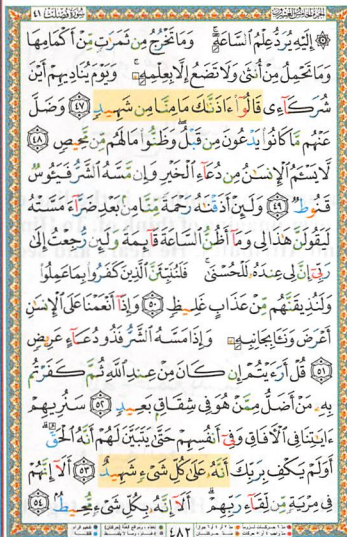 سورة فصلت ٤١
۞ إِلَيْهِ يُرَدُّ عِلْمُ ٱلسَّاعَةِ ۚ وَمَا تَخْرُجُ مِن ثَمَرَٰتٍ مِّنْ أَكْمَامِهَا
وَمَا تَحْمِلُ مِنْ أُنثَىٰ وَلَا تَضَعُ إِلَّا بِعِلْمِهِۦ ۚ وَيَوْمَ يُنَادِيهِمْ أَيْنَ
شُرَكَآءِى قَالُوٓا۟ ءَاذَنَّٰكَ مَا مِنَّا مِن شَهِيدٍ ﴿٤٧﴾ وَضَلَّ
عَنْهُم مَّا كَانُوا۟ يَدْعُونَ مِن قَبْلُ ۖ وَظَنُّوا۟ مَا لَهُم مِّن مَّحِيصٍ ﴿٤٨﴾
لَّا يَسْـَٔمُ ٱلْإِنسَٰنُ مِن دُعَآءِ ٱلْخَيْرِ وَإِن مَّسَّهُ ٱلشَّرُّ فَيَـُٔوسٌ
قَنُوطٌ ﴿٤٩﴾ وَلَئِنْ أَذَقْنَٰهُ رَحْمَةً مِّنَّا مِنۢ بَعْدِ ضَرَّآءَ مَسَّتْهُ
لَيَقُولَنَّ هَٰذَا لِى وَمَآ أَظُنُّ ٱلسَّاعَةَ قَآئِمَةً وَلَئِن رُّجِعْتُ إِلَىٰ
رَبِّىٓ إِنَّ لِى عِندَهُۥ لَلْحُسْنَىٰ ۚ فَلَنُنَبِّئَنَّ ٱلَّذِينَ كَفَرُوا۟ بِمَا عَمِلُوا۟
وَلَنُذِيقَنَّهُم مِّنْ عَذَابٍ غَلِيظٍ ﴿٥٠﴾ وَإِذَآ أَنْعَمْنَا عَلَى ٱلْإِنسَٰنِ
أَعْرَضَ وَنَـَٔا بِجَانِبِهِۦ وَإِذَا مَسَّهُ ٱلشَّرُّ فَذُو دُعَآءٍ عَرِيضٍ
﴿٥١﴾ قُلْ أَرَءَيْتُمْ إِن كَانَ مِنْ عِندِ ٱللَّهِ ثُمَّ كَفَرْتُم
بِهِۦ مَنْ أَضَلُّ مِمَّنْ هُوَ فِى شِقَاقٍۭ بَعِيدٍ ﴿٥٢﴾ سَنُرِيهِمْ
ءَايَٰتِنَا فِى ٱلْءَافَاقِ وَفِىٓ أَنفُسِهِمْ حَتَّىٰ يَتَبَيَّنَ لَهُمْ أَنَّهُ ٱلْحَقُّ ۗ
أَوَلَمْ يَكْفِ بِرَبِّكَ أَنَّهُۥ عَلَىٰ كُلِّ شَىْءٍ شَهِيدٌ ﴿٥٣﴾ أَلَآ إِنَّهُمْ
فِى مِرْيَةٍ مِّن لِّقَآءِ رَبِّهِمْ ۗ أَلَآ إِنَّهُۥ بِكُلِّ شَىْءٍ مُّحِيطٌۢ ﴿٥٤﴾
٤٨٢